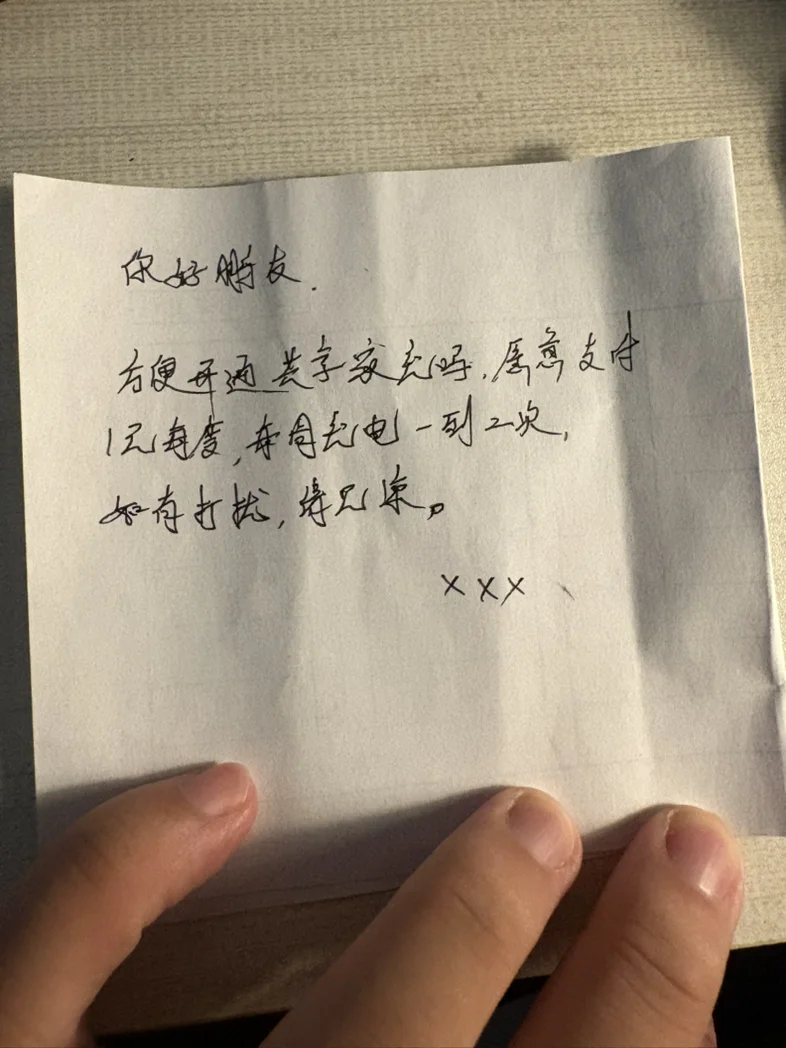 你好朋友.
方便开通共享家充吗,愿意支付
1元每度,每周充电一到二次,
如有打扰,请见谅。
xxx